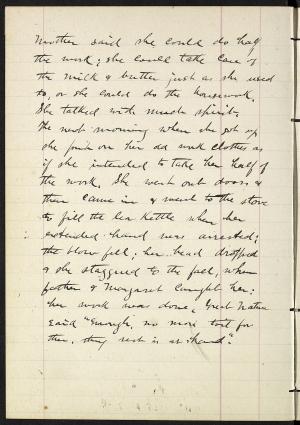 Mother said she could do half
the work; she could take care of
the milk & butter just as she used
to, or she could do the housework.
She talked with much spirit.
The next morning when she got up
she put on her old work clothes as
if she intended to take her half of
the work. She went out doors &
then came in & went to the stove
to fill the tea kettle when her
extended hand was arrested;
the blow fell; her head dropped
& she staggered to the fall, when
father & Margaret caught her:
her work was done, Great Nature
said "Enough, no more toil for
thee, thy rest is at hand."